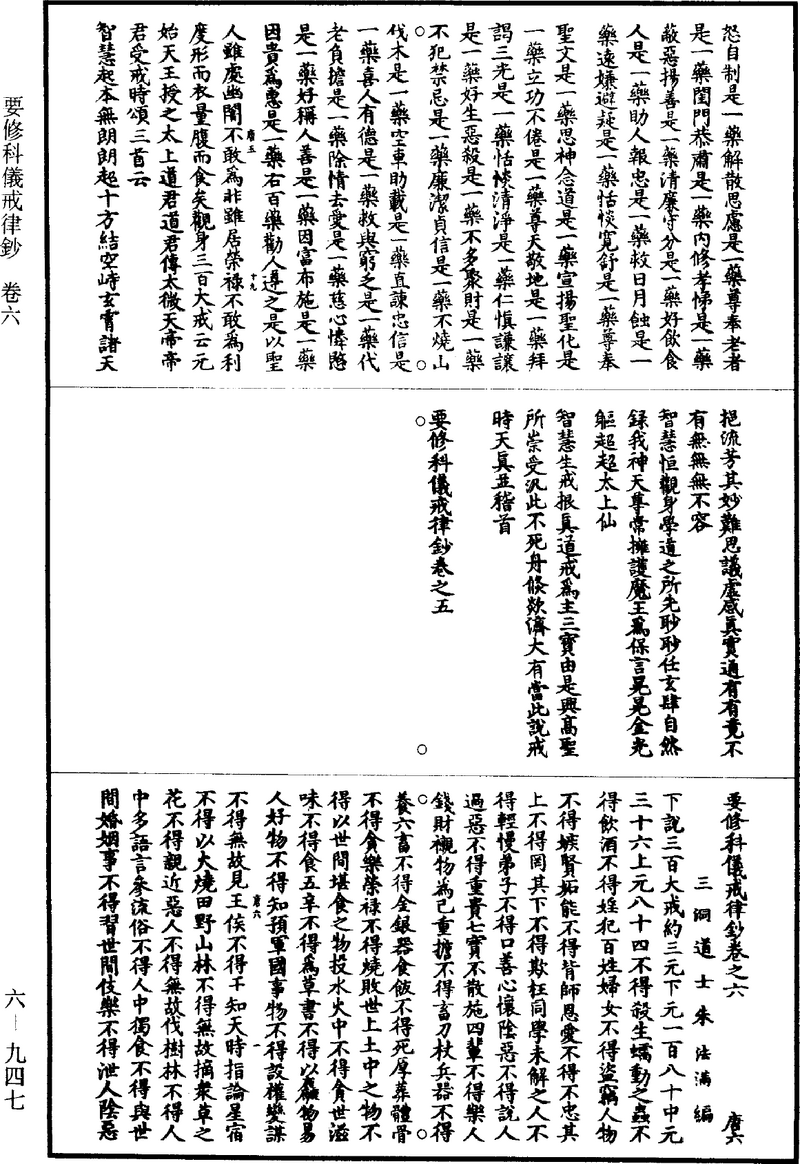 怨自制是一藥解散思慮是一藥尊奉老者
是一藥閨門恭肅是一藥內修孝悌是一藥
蔽惡揚善是一藥清廉守分是一藥好飲食
人是一藥助人報忠是一藥救日月蝕是一
藥遠嫌避疑是一藥恬惔寬舒是一藥尊奉
聖文是一藥思神念道是一藥宣揚聖化是
一藥立功不倦是一藥尊天敬地是一藥拜
謁三光是一藥恬惔清淨是一藥仁慎謙讓
是一藥好生惡殺是一藥不多聚財是一藥
不犯禁忌是一藥廉潔貞信是一藥不燒山
伐木是一藥空車助載是一藥直諫忠信是
一藥喜人有德是一藥救與窮乏是一藥代
老負擔是一藥除情去愛是一藥慈心憐愍
是一藥好稱人善是一藥因富布施是一藥
因貴為惠是一藥右百藥勸人遵之是以聖
唐五 十九
人雖處幽闇不敢為非雖居榮祿不敢為利
度形而衣量腹而食矣觀身三百大戒云元
始天王授之太上道君道君傳太微天帝帝
君受戒時頌三首云
智慧起本無朗朗超十方結空峙玄霄諸天
挹流芳其妙難思議虛感真實通有有竟不
有無無無不容
智慧恒觀身學道之所先眇眇任玄肆自然
錄我神天尊常擁護魔王為保言晃晃金光
軀超超太上仙
智慧生戒根真道戒為主三寶由是興高聖
所崇受汎此不死舟倏欻濟大有當此說戒
時天真並稽首
要修科儀戒律鈔卷之五
要修科儀戒律鈔卷之六 唐六
三洞道士朱法滿編
下說三百大戒約三元下元一百八十中元
三十六上元八十四不得殺生蠕動之蟲不
得飲酒不得婬犯百姓婦女不得盜竊人物
不得嫉賢妬能不得背師恩愛不得不忠其
上不得罔其下不得欺枉同學未解之人不
得輕慢弟子不得口善心懷陰惡不得說人
過惡不得重貴七寶不散施四輩不得樂人
錢財襯物為己重擔不得畜刀杖兵器不得
養六畜不得金銀器食飯不得死厚葬體骨
不得貪樂榮祿不得燒敗世上土中之物不
得以世間堪食之物投水火中不得貪世滋
味不得食五辛不得為草書不得以麤物易
人好物不得知預軍國事物不得設權變謀
唐六 一
不得無故見王侯不得干知天時指論星宿
不得以火燒田野山林不得無故摘衆草之
花不得親近惡人不得無故伐樹林不得人
中多語言參流俗不得人中獨食不得與世
間婚姻事不得習世間伎樂不得泄人陰惡
要修科儀戒律鈔 卷六
六－九四七